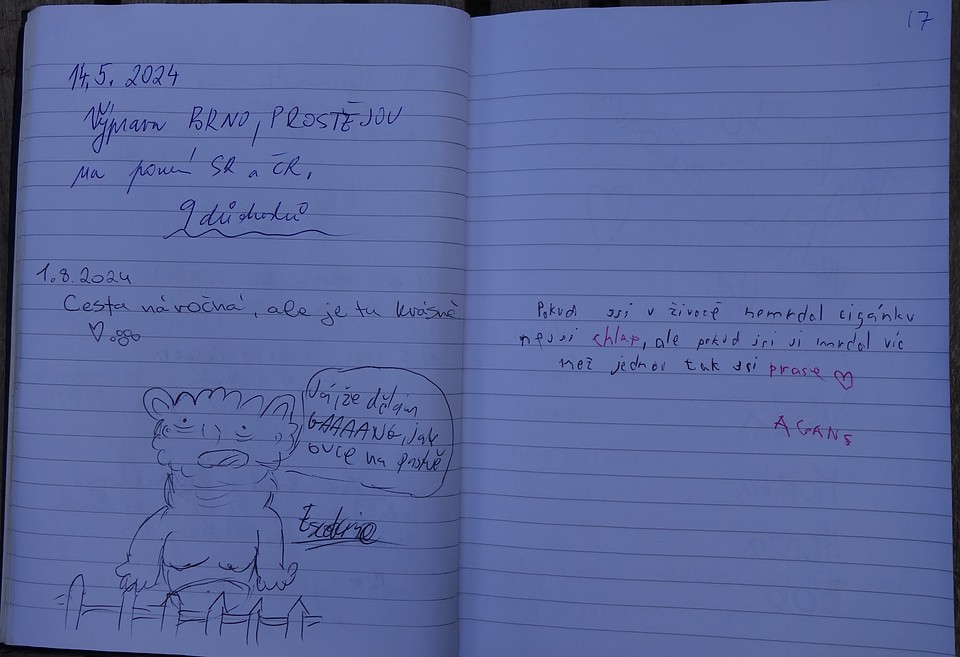 14.5. 2024
Výprava BRNO, PROSTĚJOV
na pomezí SR a ČR,
9 důchodců
1.8.2024
Cesta náročná, ale je tu krásně
♡
Já, že dělám
GAAAANG, jak
ovce na
17
Pokud jsi v životě nemrdal cigánku
nejsi chlap, ale pokud jsi ji mrdal víc
než jednou tak jsi prase ♡
AGANS